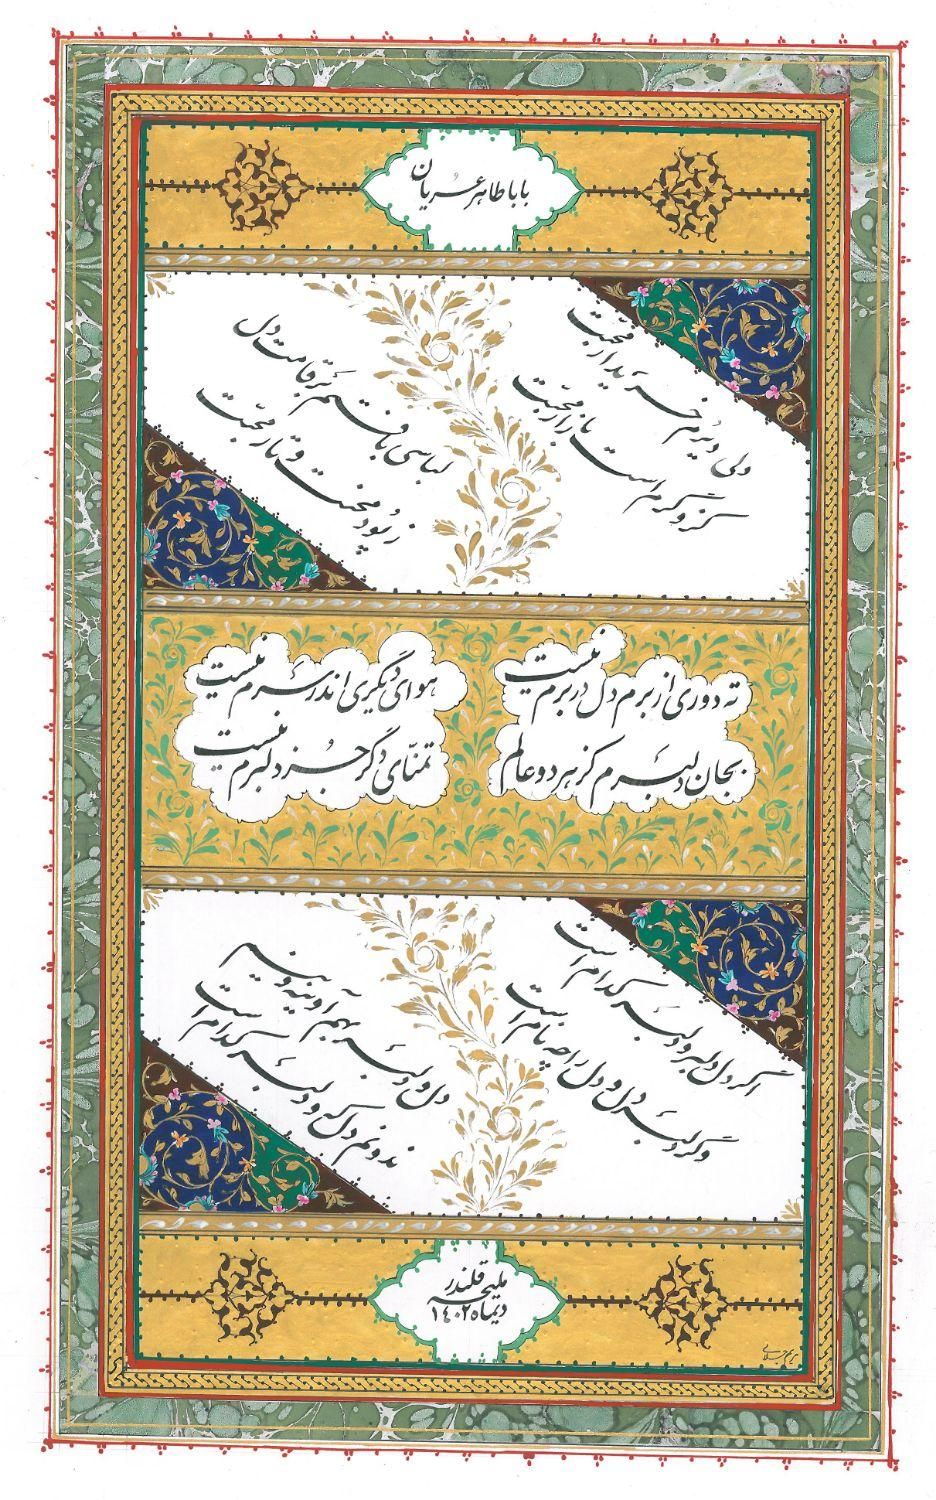 بابا طاهر عُریان
دلی دیرم خریدار محبّت
کزو گرم است بازار محبّت
لباسی بافتم بر قامت دل
ز پود محنت و تار محبّت
ته دوری از برم دل در برم نیست
هوای دیگری اندر سرم نیست
بجان دلبرم کز هر دو عالم
تمنّای دگر جز دلبرم نیست
اگر دل دلبر و دلبر کدام است
وگر دلبر دل و دل را چه نام است
دل و دلبر بهم آویته وینم
ندونم دل که و دلبر کدام است
ملیحه قلندر
دیماه ۱۴۰۲